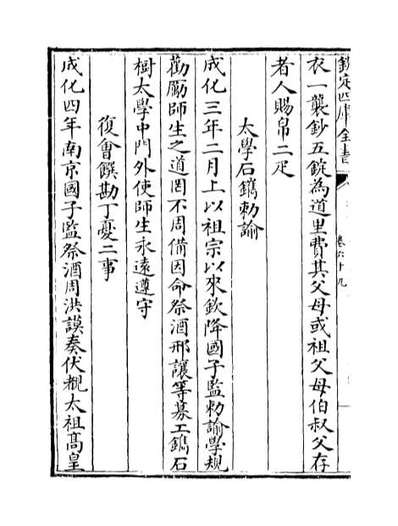 欽定四庫全書
卷六十九
衣一襲鈔五錠為道里費其父母或祖父母伯叔父存
者人賜帛二疋
太學石鐫勅諭
成化三年二月上以祖宗以來欽降國子監勅諭學規
勸勵師生之道罔不周備因命祭酒邢讓等募工鐫石
樹太學中門外使師生永遠遵守
復會饌勘丁憂二事
成化四年南京國子監祭酒周洪謨奏伏覩太祖髙皇